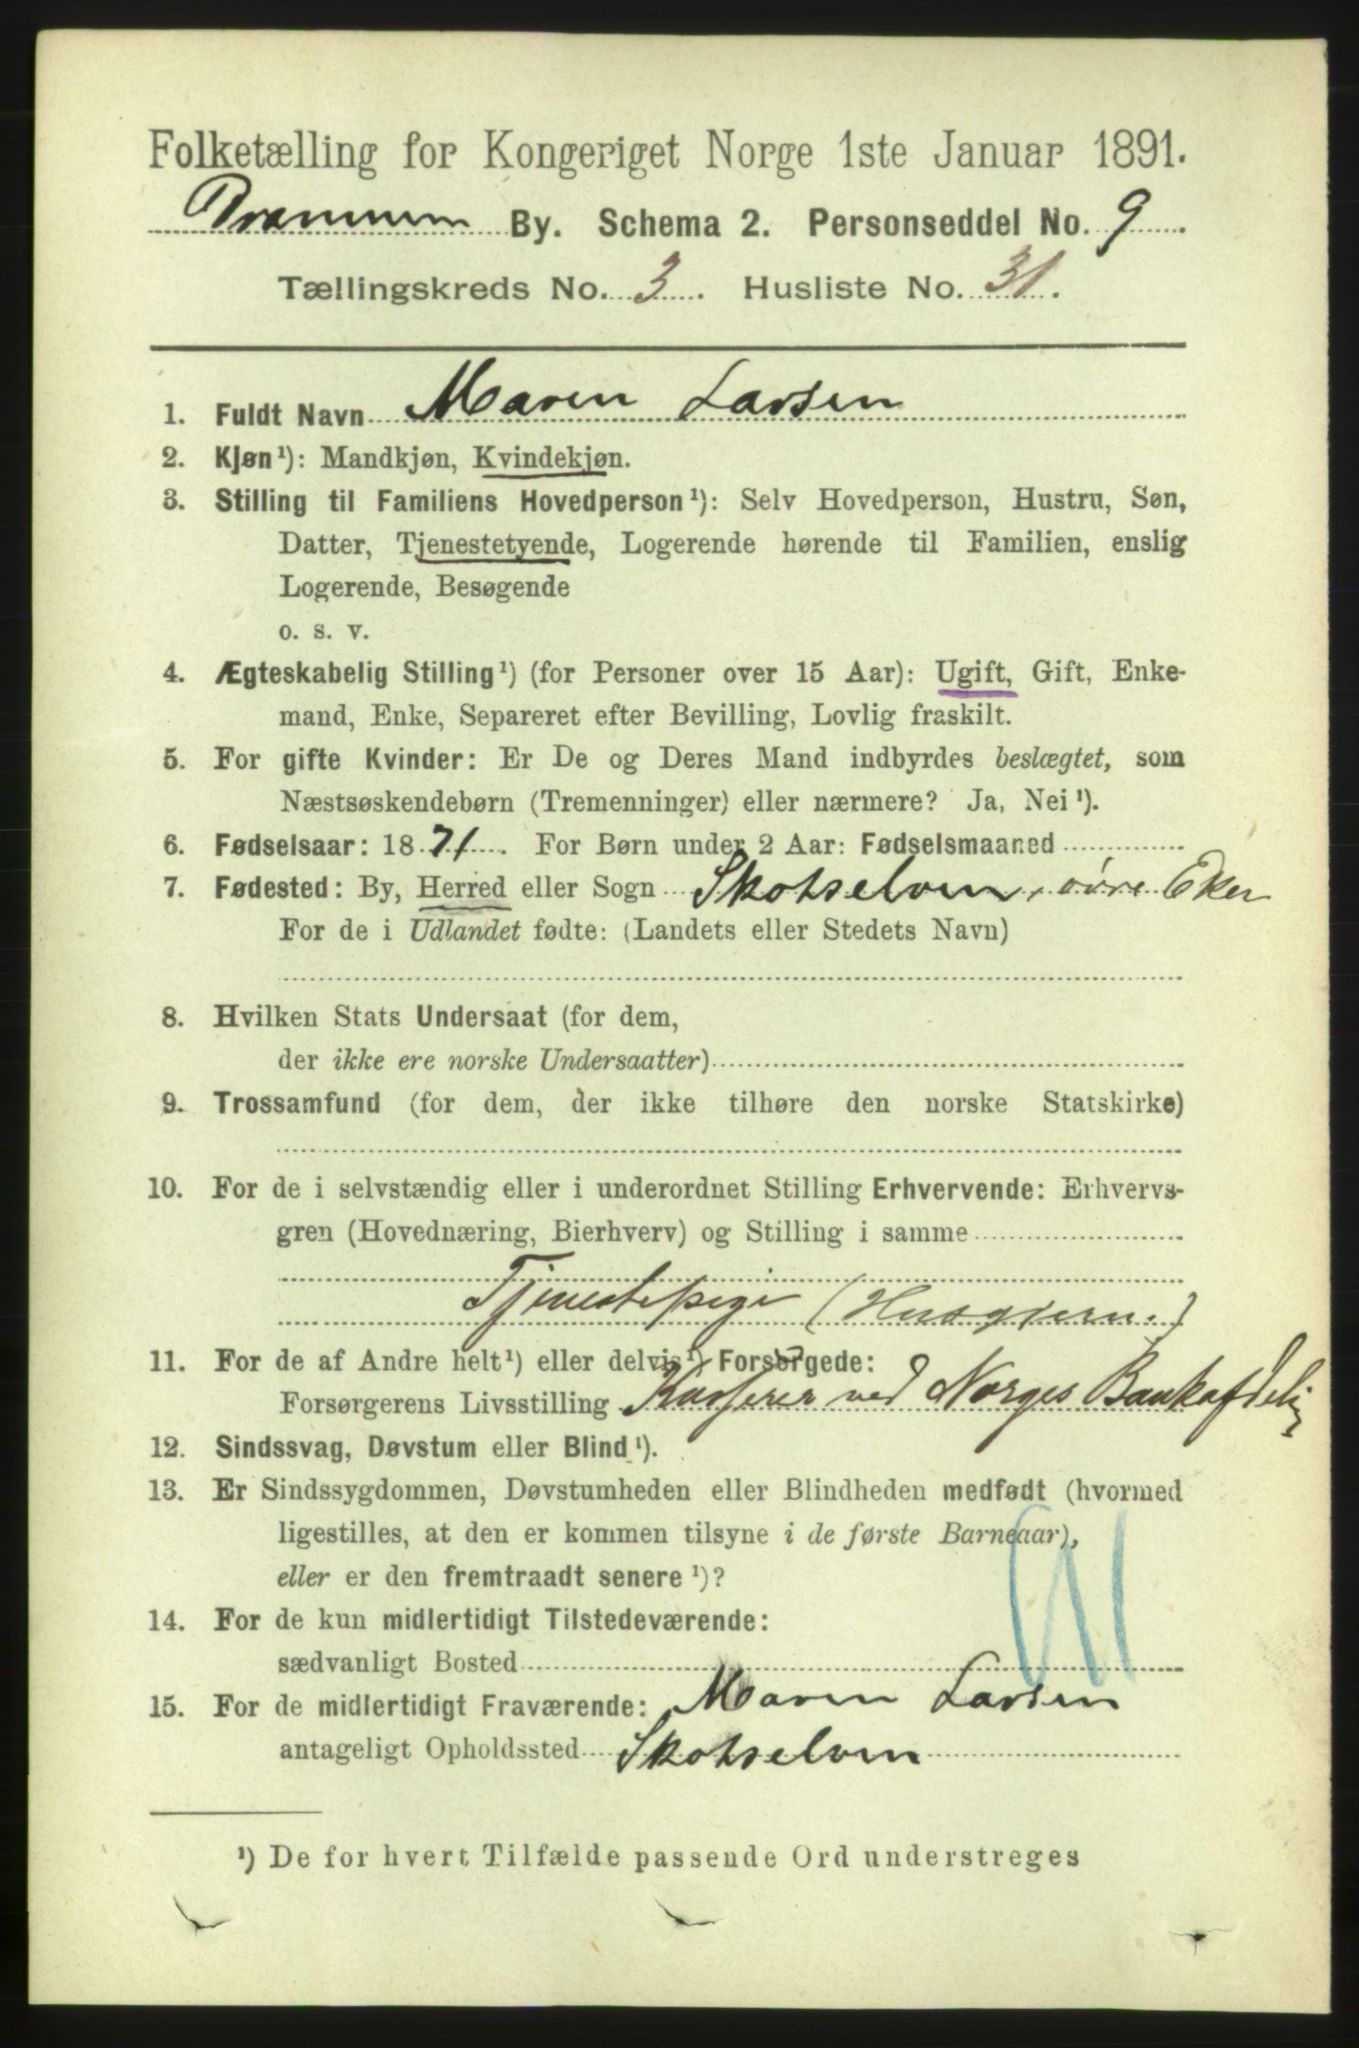 Folketælling for Kongeriget Norge 1ste Januar 1891.
Drammen By. Schema 2. Personseddel No. 9
Tællingskreds No. 3. Husliste No. 31.
1. Fuldt Navn Maren Larsen
2. Kjøn¹): Mandkjøn, Kvindekjøn.
3. Stilling til Familiens Hovedperson¹): Selv Hovedperson, Hustru, Søn,
Datter, Tjenestetyende, Logerende hørende til Familien, enslig
Logerende, Besøgende
o. s. v.
4. Ægteskabelig Stilling¹) (for Personer over 15 Aar): Ugift, Gift, Enke-
mand, Enke, Separeret efter Bevilling, Lovlig fraskilt.
5. For gifte Kvinder: Er De og Deres Mand indbyrdes beslægtet, som
Næstsøskendebørn (Tremenninger) eller nærmere? Ja, Nei¹).
6. Fødselsaar: 1871. For Børn under 2 Aar: Fødselsmaaned
7. Fødested: By, Herred eller Sogn Skotselven, øvre Eker
For de i Udlandet fødte: (Landets eller Stedets Navn)
8. Hvilken Stats Undersaat (for dem,
der ikke ere norske Undersaatter)
9. Trossamfund (for dem, der ikke tilhøre den norske Statskirke)
10. For de i selvstændig eller i underordnet Stilling Erhvervende: Erhvervs-
gren (Hovednæring, Bierhverv) og Stilling i samme
Tjenestepige (Husgjern.)
11. For de af Andre helt¹) eller delvis¹) Forsørgede:
Forsørgerens Livsstilling Kasserer ved Norges Bankafdelig
12. Sindssvag, Døvstum eller Blind¹).
13. Er Sindssygdommen, Døvstumheden eller Blindheden medfødt (hvormed
ligestilles, at den er kommen tilsyne i de første Barneaar),
eller er den fremtraadt senere¹)?
14. For de kun midlertidigt Tilstedeværende:
sædvanligt Bosted
15. For de midlertidigt Fraværende: Maren Larsen
antageligt Opholdssted Skotselven
¹) De for hvert Tilfælde passende Ord understreges